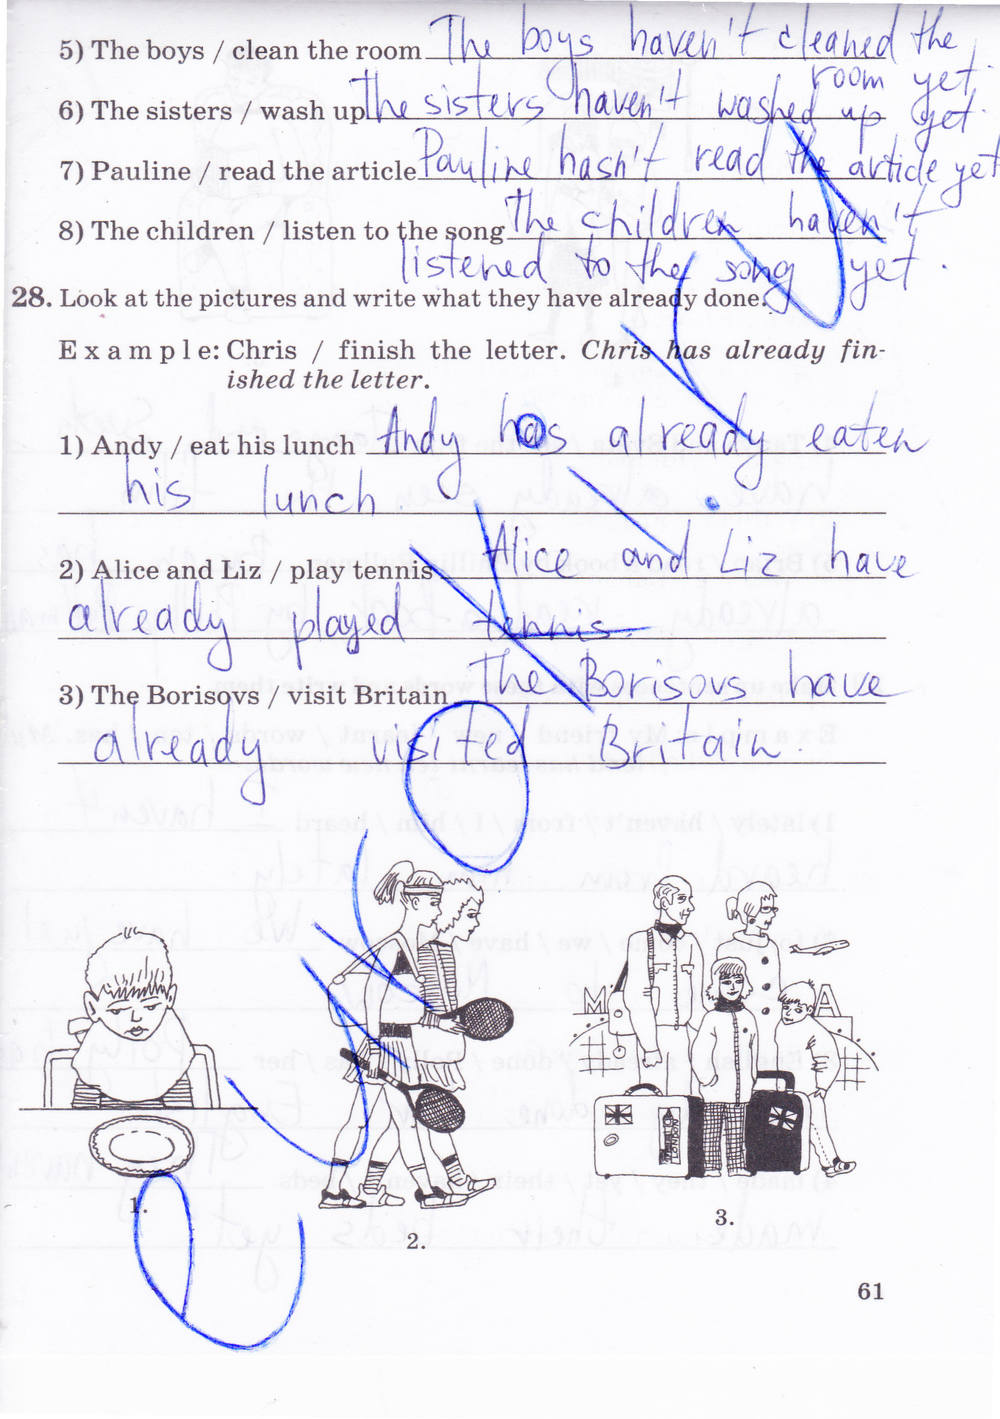 5) The boys / clean the room The boys haven't cleaned the
room yet.
6) The sisters / wash up The sisters haven't washed up yet.
7) Pauline / read the article Pauline hasn't read the article yet
8) The children / listen to the song The children haven't
listened to the song yet.
28. Look at the pictures and write what they have already done.
Example: Chris / finish the letter. Chris has already fin-
ished the letter.
1) Andy / eat his lunch Andy has already eaten
his lunch.
2) Alice and Liz / play tennis Alice and Liz have
already played tennis.
3) The Borisovs / visit Britain The Borisovs have
already visited Britain.
M A
LONDON
1.
2.
3.
61